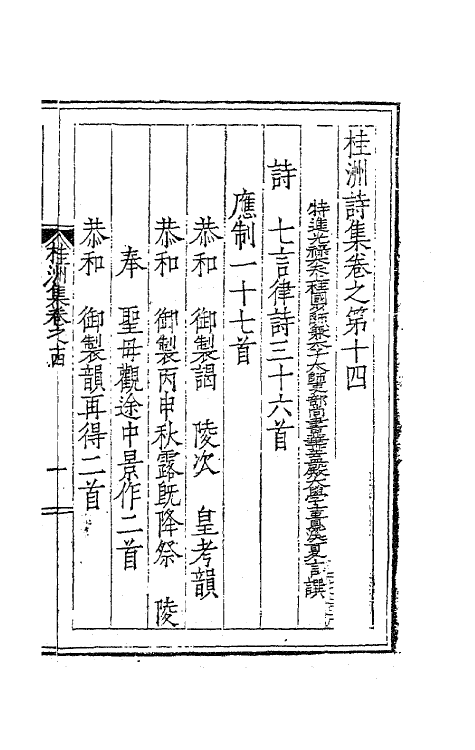 桂洲詩集卷之第十四
特進光祿大夫上柱國少師兼太子太師吏部尚書華蓋殿大學士貴溪夏言譔
詩 七言律詩三十六首
應制一十七首
恭和 御製謁 陵次 皇考韻
恭和 御製丙申秋露旣降祭 陵
奉 聖母觀途中景作二首
恭和 御製韻再得二首
桂洲集卷之十四
十